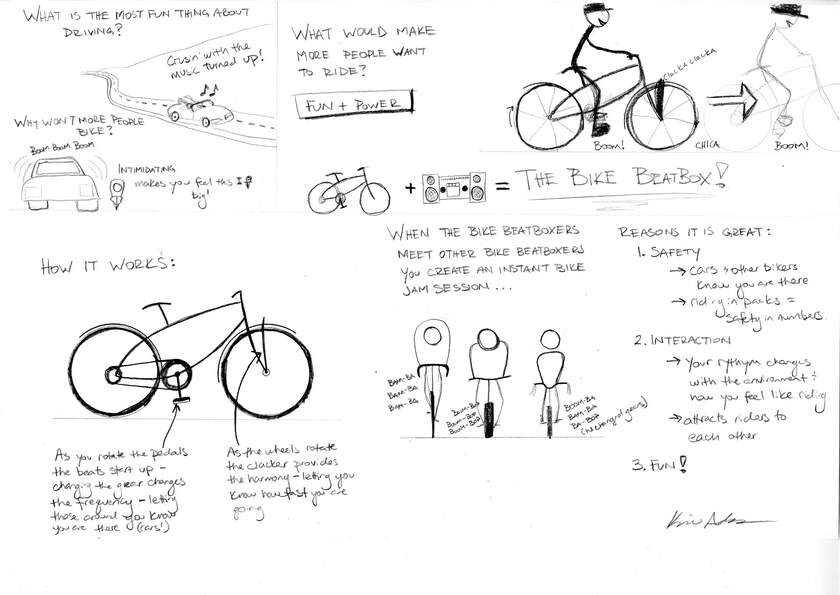 WHAT IS THE MOST FUN THING ABOUT
DRIVING?
Crusin' with the
music turned up!
WHY WON'T MORE PEOPLE
BIKE?
BOOM BOOM BOOM
INTIMIDATING
makes you feel this
big!
WHAT WOULD MAKE
MORE PEOPLE WANT
TO RIDE?
FUN + POWER
CLACKA CLACKA
BOOM!
CHICA
BOOM!
+
= THE BIKE BEATBOX!
HOW IT WORKS:
As you rotate the pedals
the beats start up –
changing the gear changes
the frequency – letting
those around you know
you are there (cars!)
As the wheels rotate
the clacker provides
the harmony – letting you
know how fast you are
going
WHEN THE BIKE BEATBOXERS
MEET OTHER BIKE BEATBOXERS
YOU CREATE AN INSTANT BIKE
JAM SESSION...
BAM-BA
BAM-BA
BAM-BA
BOOM-BA
BAM-BA
(w/ change of gears)
REASONS IT IS GREAT:
1. SAFETY
→ cars + other bikers
know you are there
→ riding in packs =
safety in numbers.
2. INTERACTION
→ Your rythym changes
with the environment +
how you feel like riding.
→ attracts riders to
each other
3. FUN!